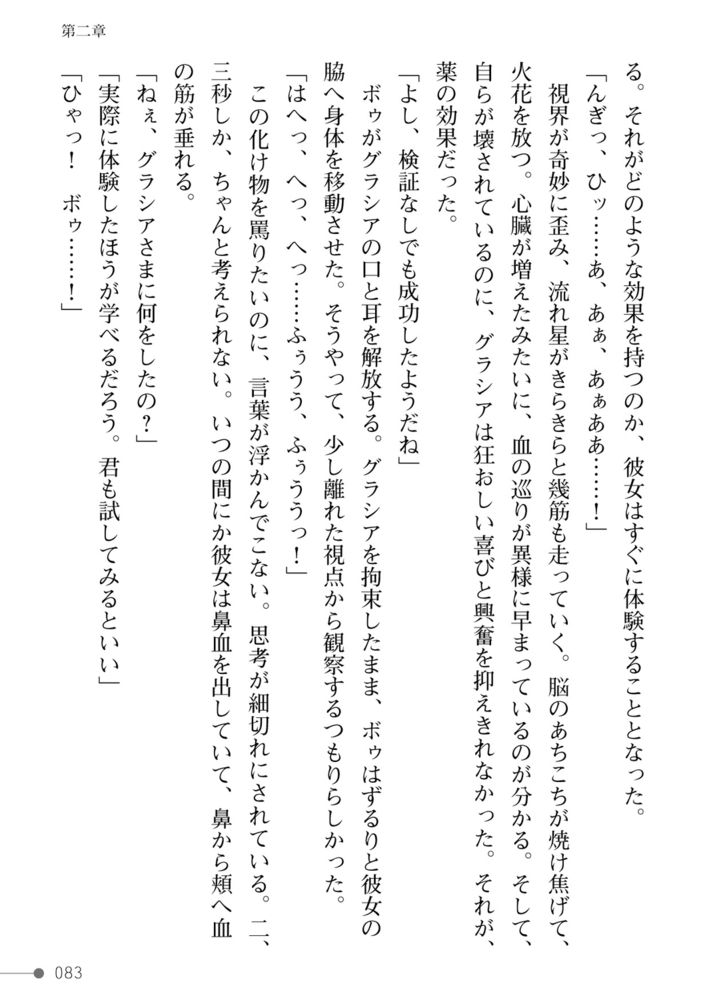 第二章
る。それがどのような効果を持つのか、彼女はすぐに体験することとなった。
「んぎっ、ひッ……あ、あぁ、あぁああ……！」
視界が奇妙に歪み、流れ星がきらきらと幾筋も走っていく。脳のあちこちが焼け焦げて、
火花を放つ。心臓が増えたみたいに、血の巡りが異様に早まっているのが分かる。そして、
自らが壊されているのに、グラシアは狂おしい喜びと興奮を抑えきれなかった。それが、
薬の効果だった。
「よし、検証なしでも成功したようだね」
ボゥがグラシアの口と耳を解放する。グラシアを拘束したまま、ボゥはずるりと彼女の
脇へ身体を移動させた。そうやって、少し離れた視点から観察するつもりらしかった。
「はへっ、へっ、へっ……ふぅうう、ふぅううっ！」
この化け物を罵りたいのに、言葉が浮かんでこない。思考が細切れにされている。二、
三秒しか、ちゃんと考えられない。いつの間にか彼女は鼻血を出していて、鼻から頬へ血
の筋が垂れる。
「ねぇ、グラシアさまに何をしたの？」
「実際に体験したほうが学べるだろう。君も試してみるといい」
「ひゃっ！　ボゥ……！」
083